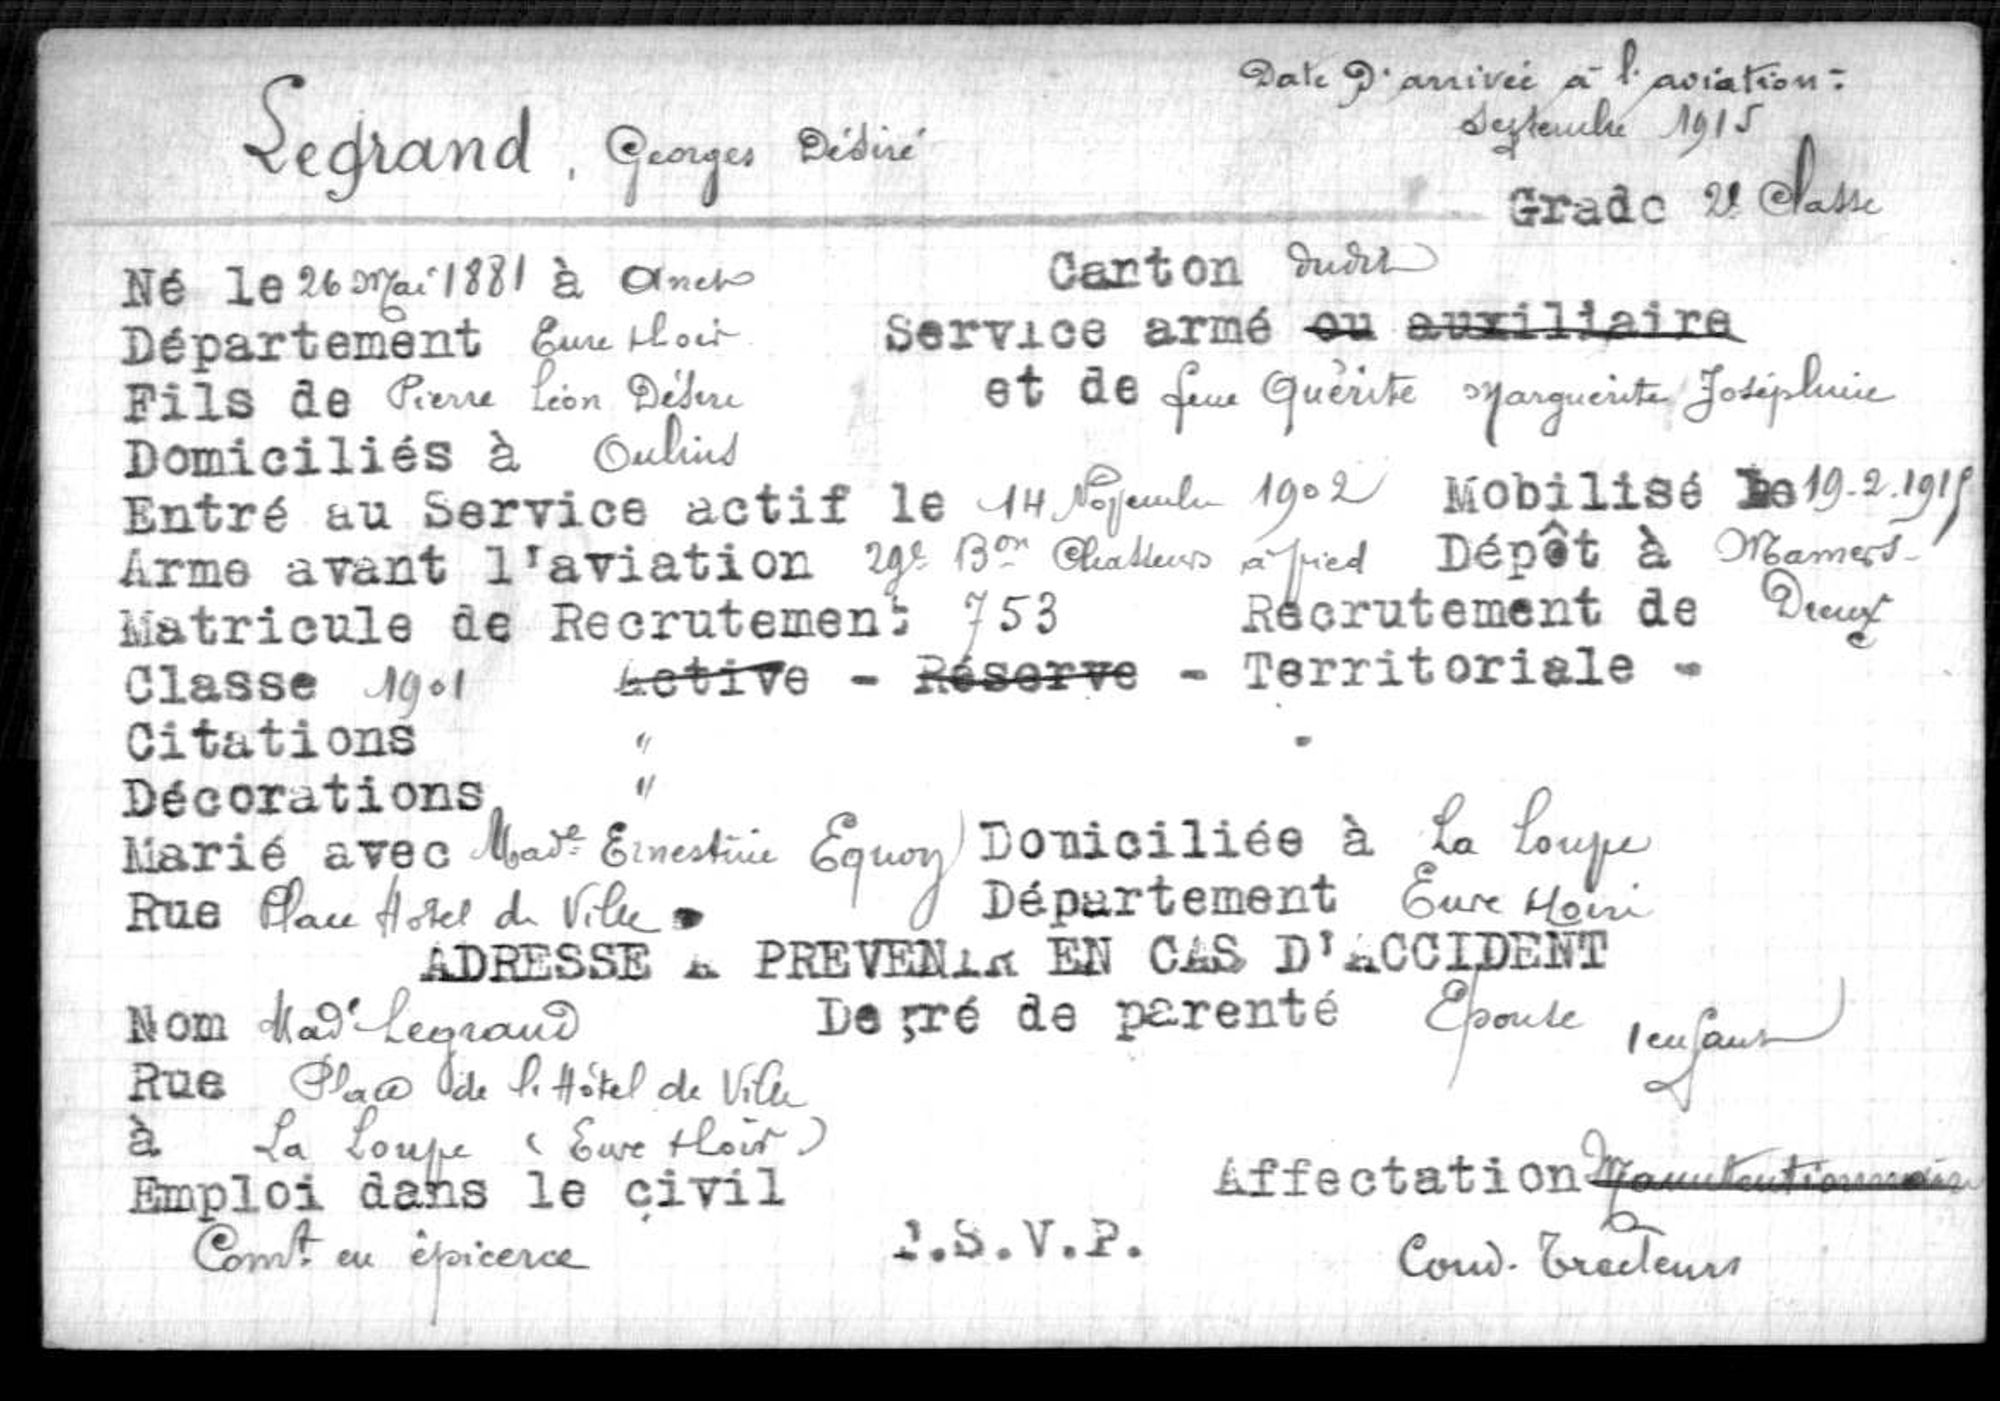 Date D'arrivée à l'aviation :
Septembre 1915
Legrand, Georges Désiré
Grade 2e Classe
Né le 26 Mai 1881 à Anet Canton dudit
Département Eure et Loir Service armé ou auxiliaire
Fils de Pierre Léon Désiré et de feue Quérité Marguerite Joséphine
Domiciliés à Oulins
Entré au Service actif le 14 Novembre 1902 Mobilisé le 19.2.1915
Arme avant l'aviation 29e Bon Chasseurs à pied Dépôt à Mamers
Matricule de Recrutement 753 Recrutement de Dreux
Classe 1901 Active - Réserve - Territoriale -
Citations "
Décorations "
Marié avec Made Ernestine Equoy Domiciliée à La Loupe
Rue Place Hôtel de Ville. Département Eure et Loir
ADRESSE A PREVENIR EN CAS D'ACCIDENT
Nom Made Legrand Degré de parenté Epouse 1 enfant
Rue Place de l'Hôtel de Ville
à La Loupe (Eure et Loir)
Emploi dans le civil Affectation Manutentionnaire
Comt. en épicerie T.S.V.P. Cond. Tracteurs